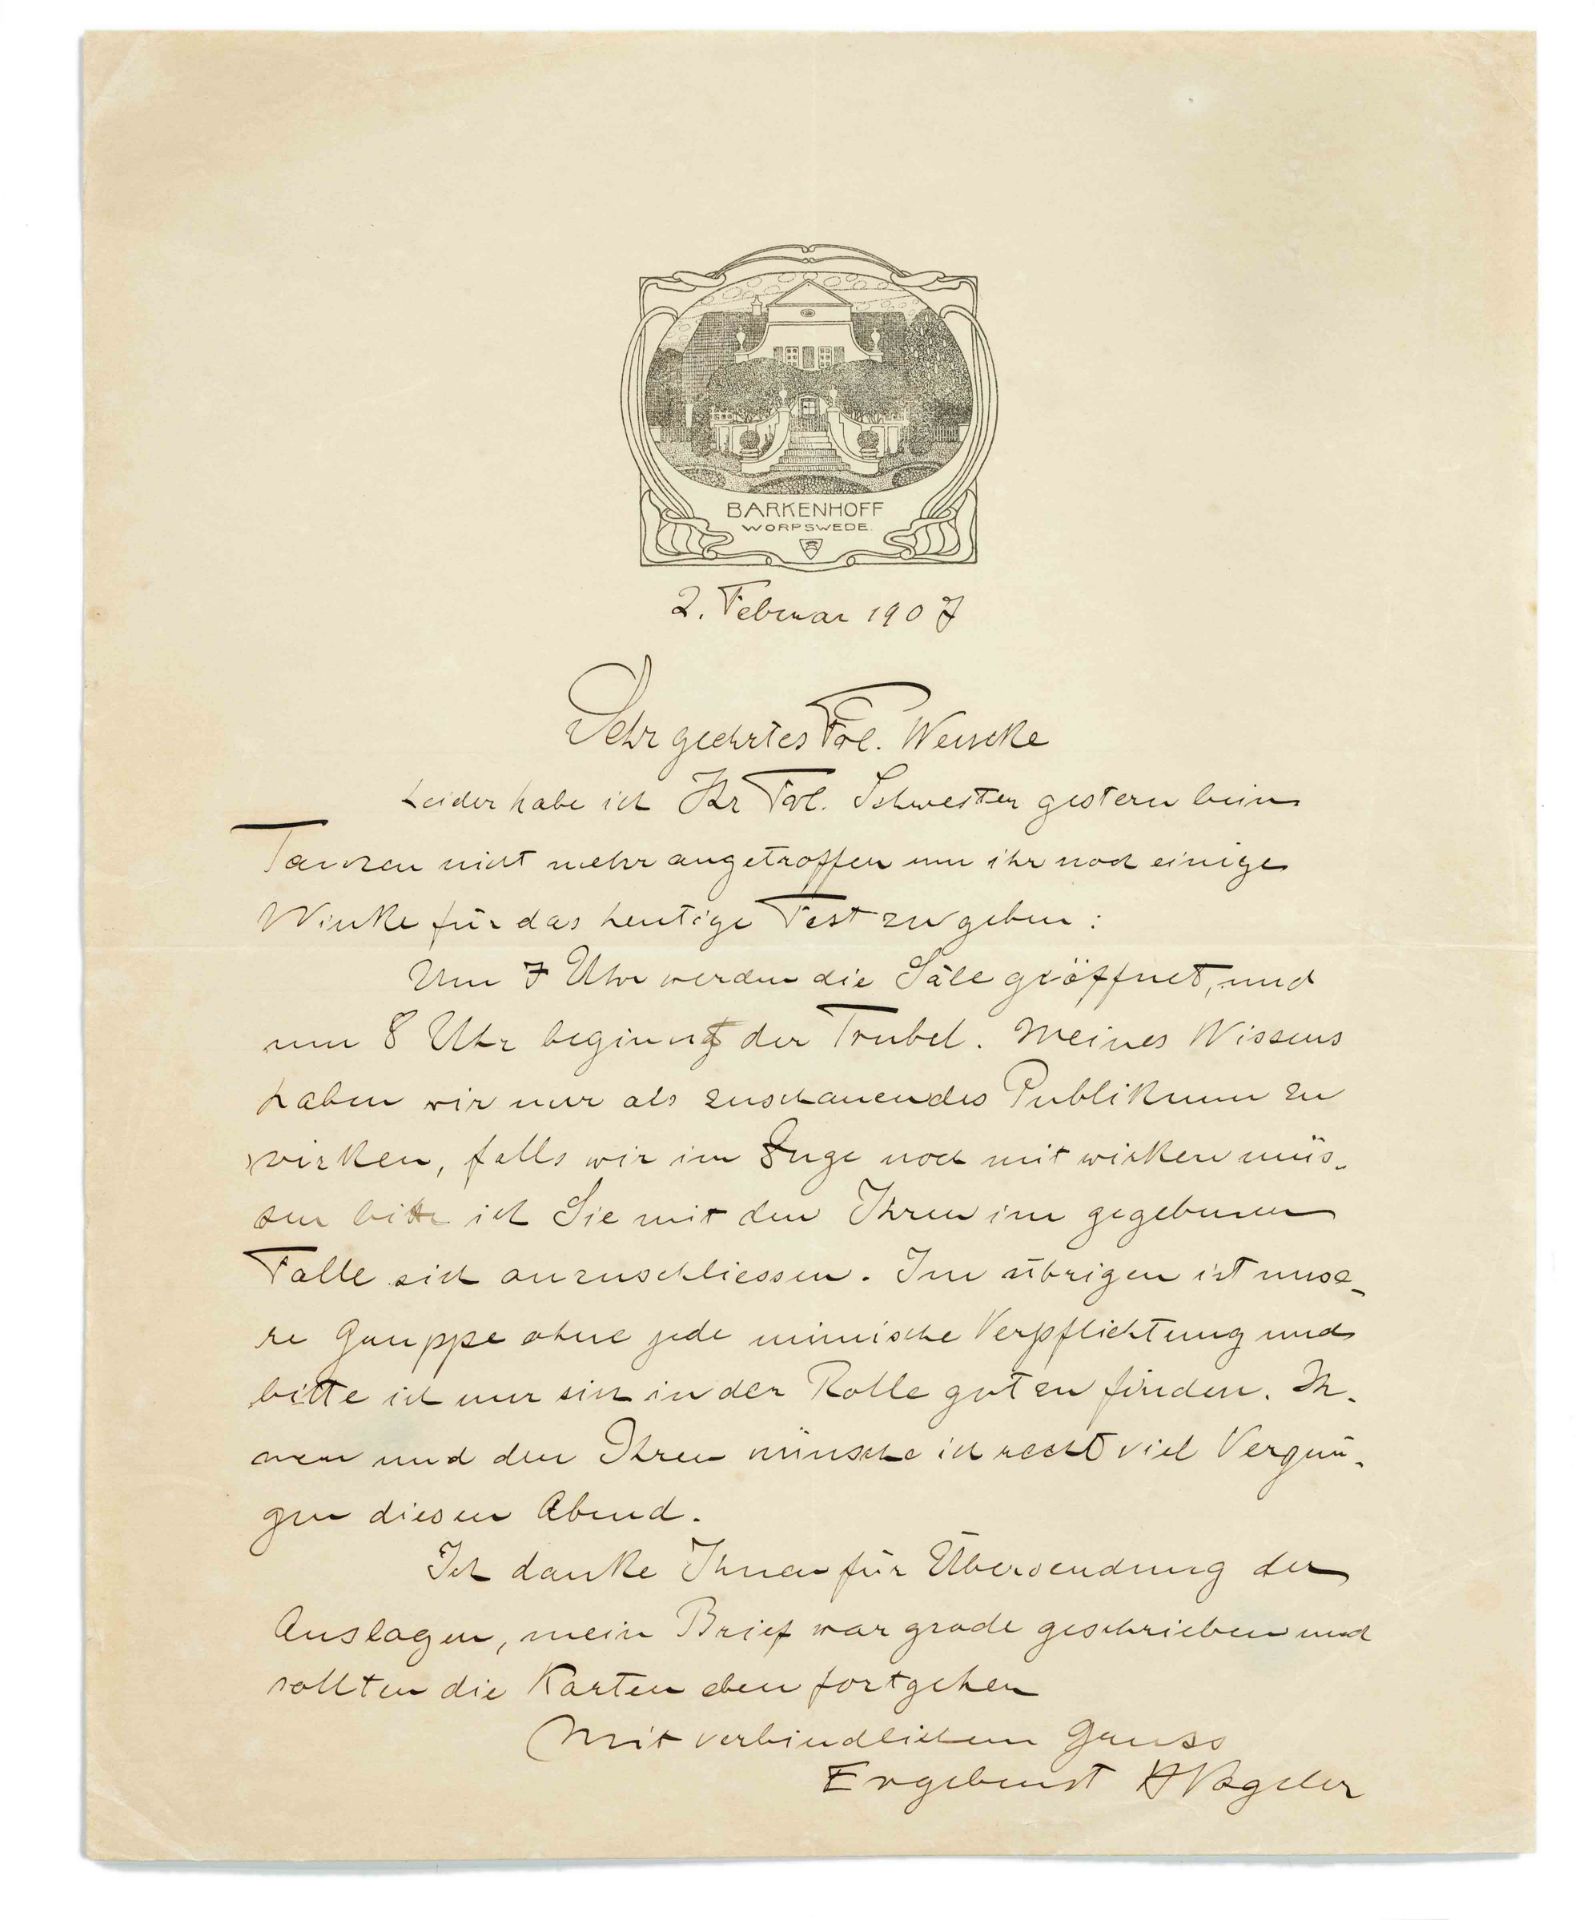 BARKENHOFF
WORPSWEDE.
2. Februar 1907
Sehr geehrtes Frl.
Leider habe ich Ihr Frl. Schwester gestern beim
Tanzen nicht mehr angetroffen um ihr noch einige
Winke für das heutige Fest zu geben:
Um 7 Uhr werden die Säle geöffnet, und
um 8 Uhr beginnt der Trubel. Meines Wissens
haben wir nur als zuschauendes Publikum zu
wirken, falls wir im Zuge noch mit wirken müs-
sen bitte ich Sie mit den Ihren im gegebenen
Falle sich anzuschliessen. Im übrigen ist unse-
re Gruppe ohne jede mimische Verpflichtung und
bitte ich nur sich in der Rolle gut zu finden. Ih-
nen und den Ihren wünsche ich recht viel Vergnü-
gen diesen Abend.
Ich danke Ihnen für Übersendung der
Auslagen, mein Brief war grade geschrieben und
sollten die Karten eben fortgehen
Mit verbindlichem Gruss
Ergebenst HVogeler